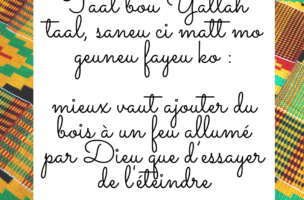 Taal bou Yallah
taal, saneu ci matt mo
geuneu fayeu ko :
mieux vaut ajouter du
bois à un feu allumé
par Dieu que d'essayer
de l'éteindre